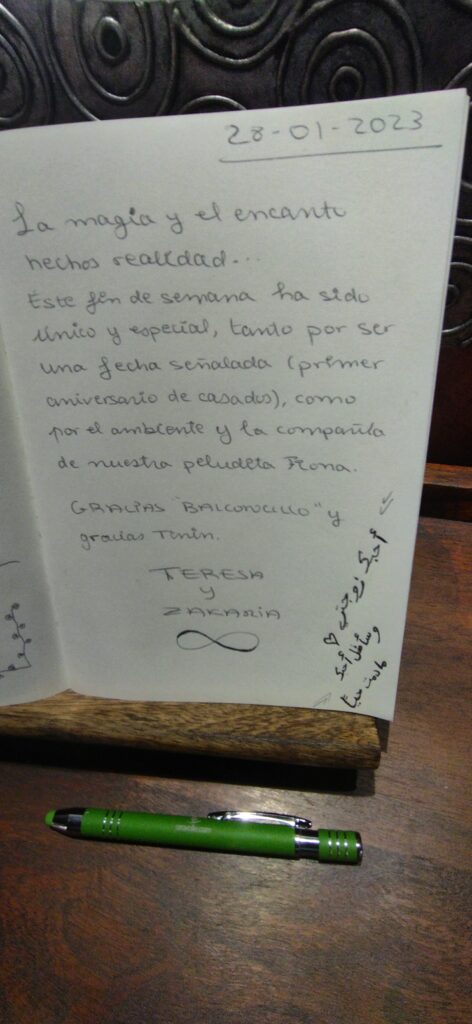 28-01-2023
La magia y el encanto
hechos realidad...
Este fin de semana ha sido
único y especial, tanto por ser
una fecha señalada (primer
aniversario de casados), como
por el ambiente y la compañía
de nuestra peludeta Frona.
GRACIAS "BALCONCILLO" y
gracias Tinin.
TERESA
y
ZAKARIA
أحبك
وسأظل أحبك
مادمت حيا